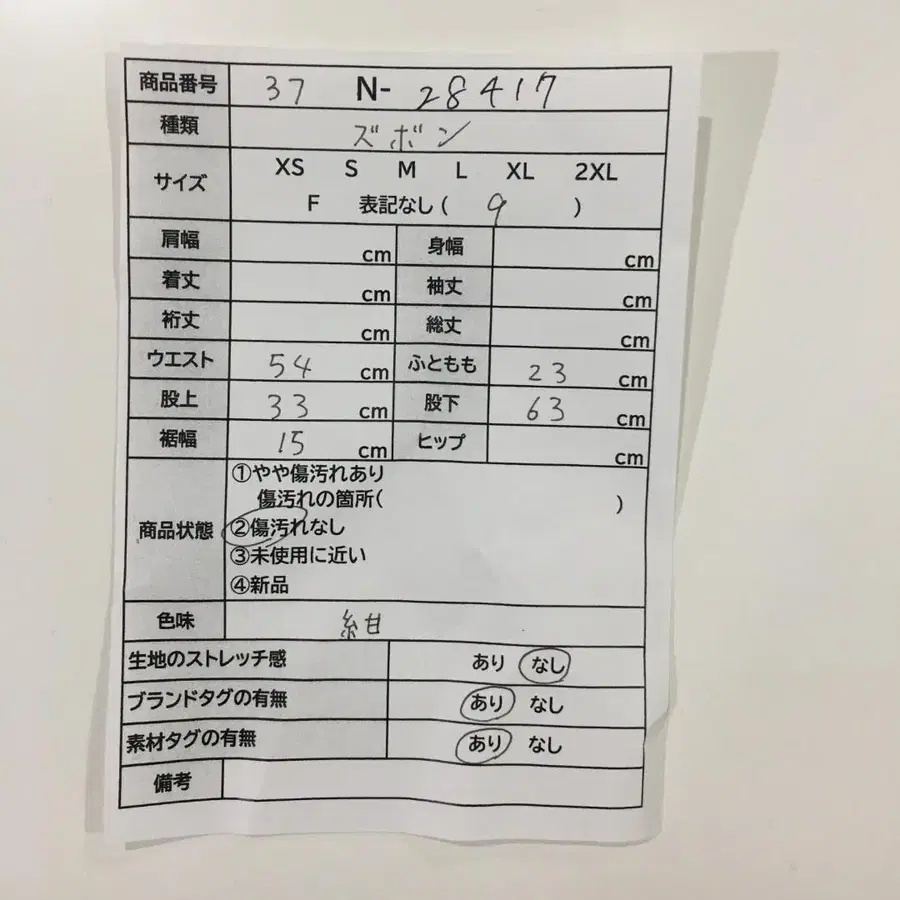 商品番号 37 N- 28417
種類 ズボン
サイズ XS S M L XL 2XL
F 表記なし ( 9 )
肩幅 cm 身幅 cm
着丈 cm 袖丈 cm
裄丈 cm 総丈 cm
ウエスト 54 cm ふともも 23 cm
股上 33 cm 股下 63 cm
裾幅 15 cm ヒップ cm
商品状態 ①やや傷汚れあり
傷汚れの箇所( )
②傷汚れなし
③未使用に近い
④新品
色味 紺
生地のストレッチ感 あり なし
ブランドタグの有無 あり なし
素材タグの有無 あり なし
備考